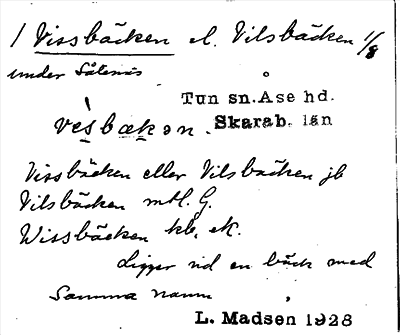 1 Vissbäcken el. Vilsbäcken 1/8
under Såtenäs
Tun sn. Åse hd.
vesbækən. Skarab. län
Vissbäcken eller Vilsbäcken jb
Vilsbäcken mtl. G.
Wissbäcken kb, eK.
Ligger vid en bäck med
samma namn
L. Madsen 1928